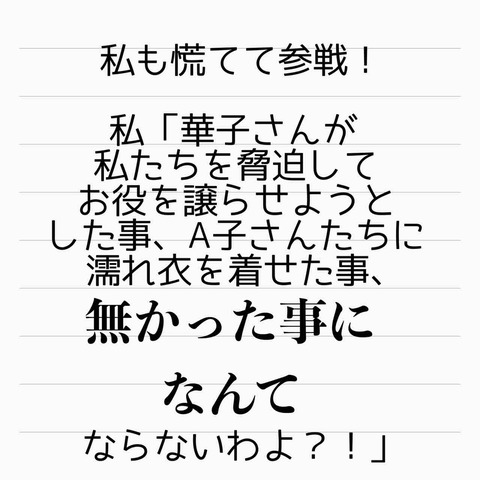 私も慌てて参戦！
私「華子さんが
私たちを脅迫して
お役を譲らせようと
した事、A子さんたちに
濡れ衣を着せた事、
無かった事に
なんて
ならないわよ？！」